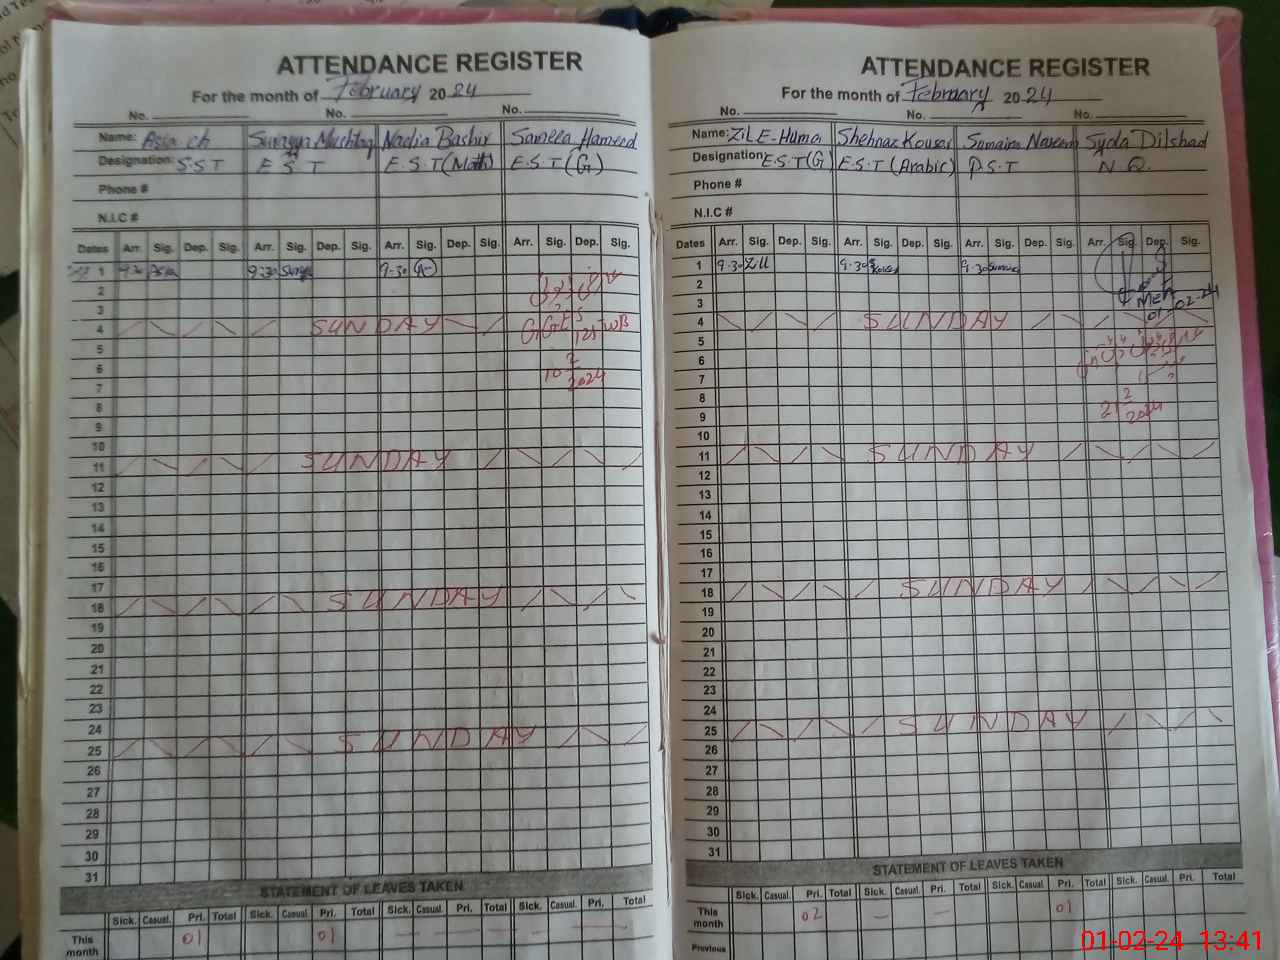 ATTENDANCE REGISTER
For the month of February 2024
No. No. No.
Name: Asia ch Surayya Mushtaq Nadia Bashir Sameela Hameed
Designation: S.S.T E.S.T E.S.T (Math) E.S.T (G)
Phone #
N.I.C #
Dates Arr. Sig. Dep. Sig. Arr. Sig. Dep. Sig. Arr. Sig. Dep. Sig. Arr. Sig. Dep. Sig.
1 9-30 Asia 9-30 9-30
2
3
4 SUNDAY
5
6
7
8
9
10
11 SUNDAY
12
13
14
15
16
17
18 SUNDAY
19
20
21
22
23
24
25 SUNDAY
26
27
28
29
30
31
STATEMENT OF LEAVES TAKEN
Sick. Casual. Pri. Total Sick. Casual. Pri. Total Sick. Casual. Pri. Total Sick. Casual. Pri. Total
This month 01 01 — — — —
ATTENDANCE REGISTER
For the month of February 2024
No. No. No.
Name: Zil E-Huma Shehnaz Kousar Samaira Naseem Syda Dilshad
Designation E.S.T (G) E.S.T (Arabic) P.S.T N.Q.
Phone #
N.I.C #
Dates Arr. Sig. Dep. Sig. Arr. Sig. Dep. Sig. Arr. Sig. Dep. Sig. Arr. Sig. Dep. Sig.
1 9-30 Zill 9-30 Kousar 9-30
2
3 MEA 01-02-24
4 SUNDAY
5
6
7
8
9
10
11 SUNDAY
12
13
14
15
16
17
18 SUNDAY
19
20
21
22
23
24
25 SUNDAY
26
27
28
29
30
31
STATEMENT OF LEAVES TAKEN
Sick. Casual. Pri. Total Sick. Casual. Pri. Total Sick. Casual. Pri. Total Sick. Casual. Pri. Total
This month 02 — — 01
Previous
01-02-24 13:41